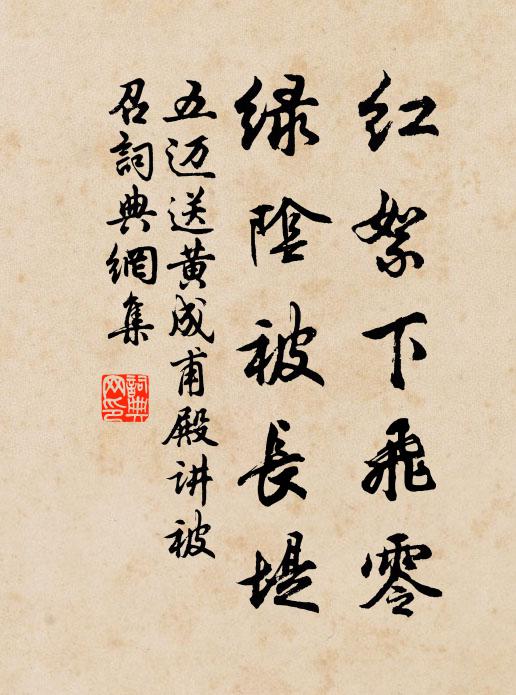 红絮下飛零
绿陰被長堤
五迈送黄成甫殿讲被
召詞典網集
詞典
网印